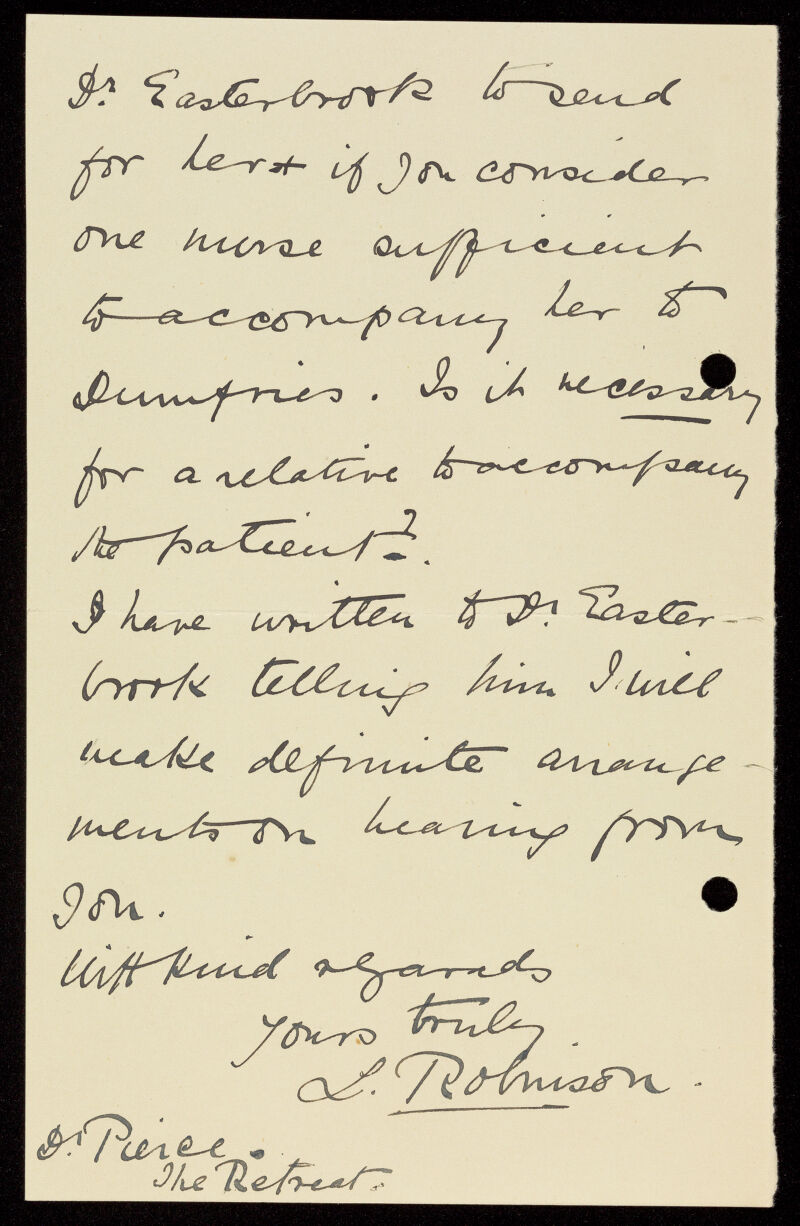 Dr. Easterbrook to send
for her + if you consider
one nurse sufficient
to accompany her to
Dumfries. Is it necessary
for a relative to accompany
the patient?.
I have written to Dr. Easter-
brook telling him I will
make definite arrange-
ments on hearing from
you.
With kind regards
Yours truly
L. Robinson.
Dr. Pierce.
The Retreat.